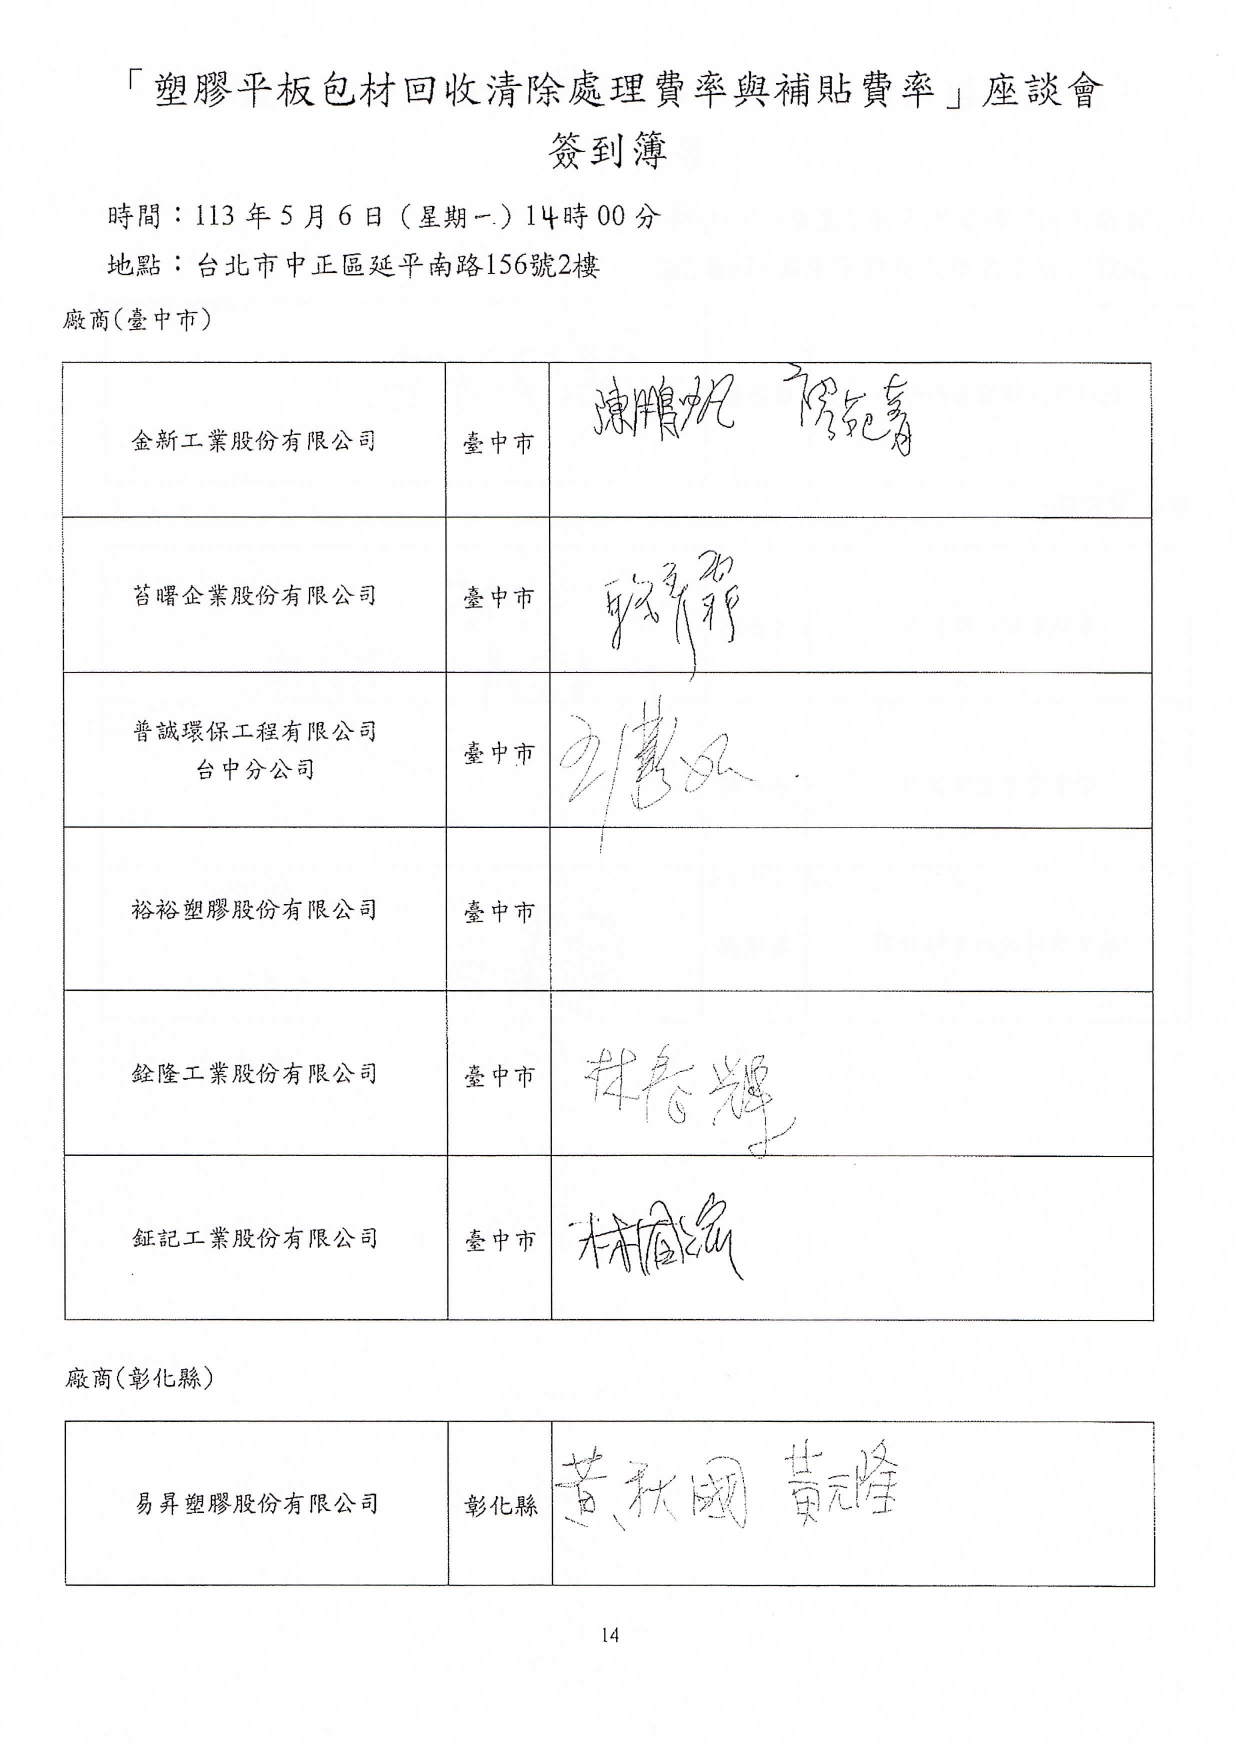 「塑膠平板包材回收清除處理費率與補貼費率」座談會
簽到簿
時間：113 年 5 月 6 日（星期一）14時 00 分
地點：台北市中正區延平南路156號2樓
廠商(臺中市)
金新工業股份有限公司 臺中市 陳鵬帆
苔曙企業股份有限公司 臺中市
普誠環保工程有限公司
台中分公司 臺中市
裕裕塑膠股份有限公司 臺中市
銓隆工業股份有限公司 臺中市 林春輝
鉦記工業股份有限公司 臺中市
廠商(彰化縣)
易昇塑膠股份有限公司 彰化縣 黃秋國 黃元隆
14